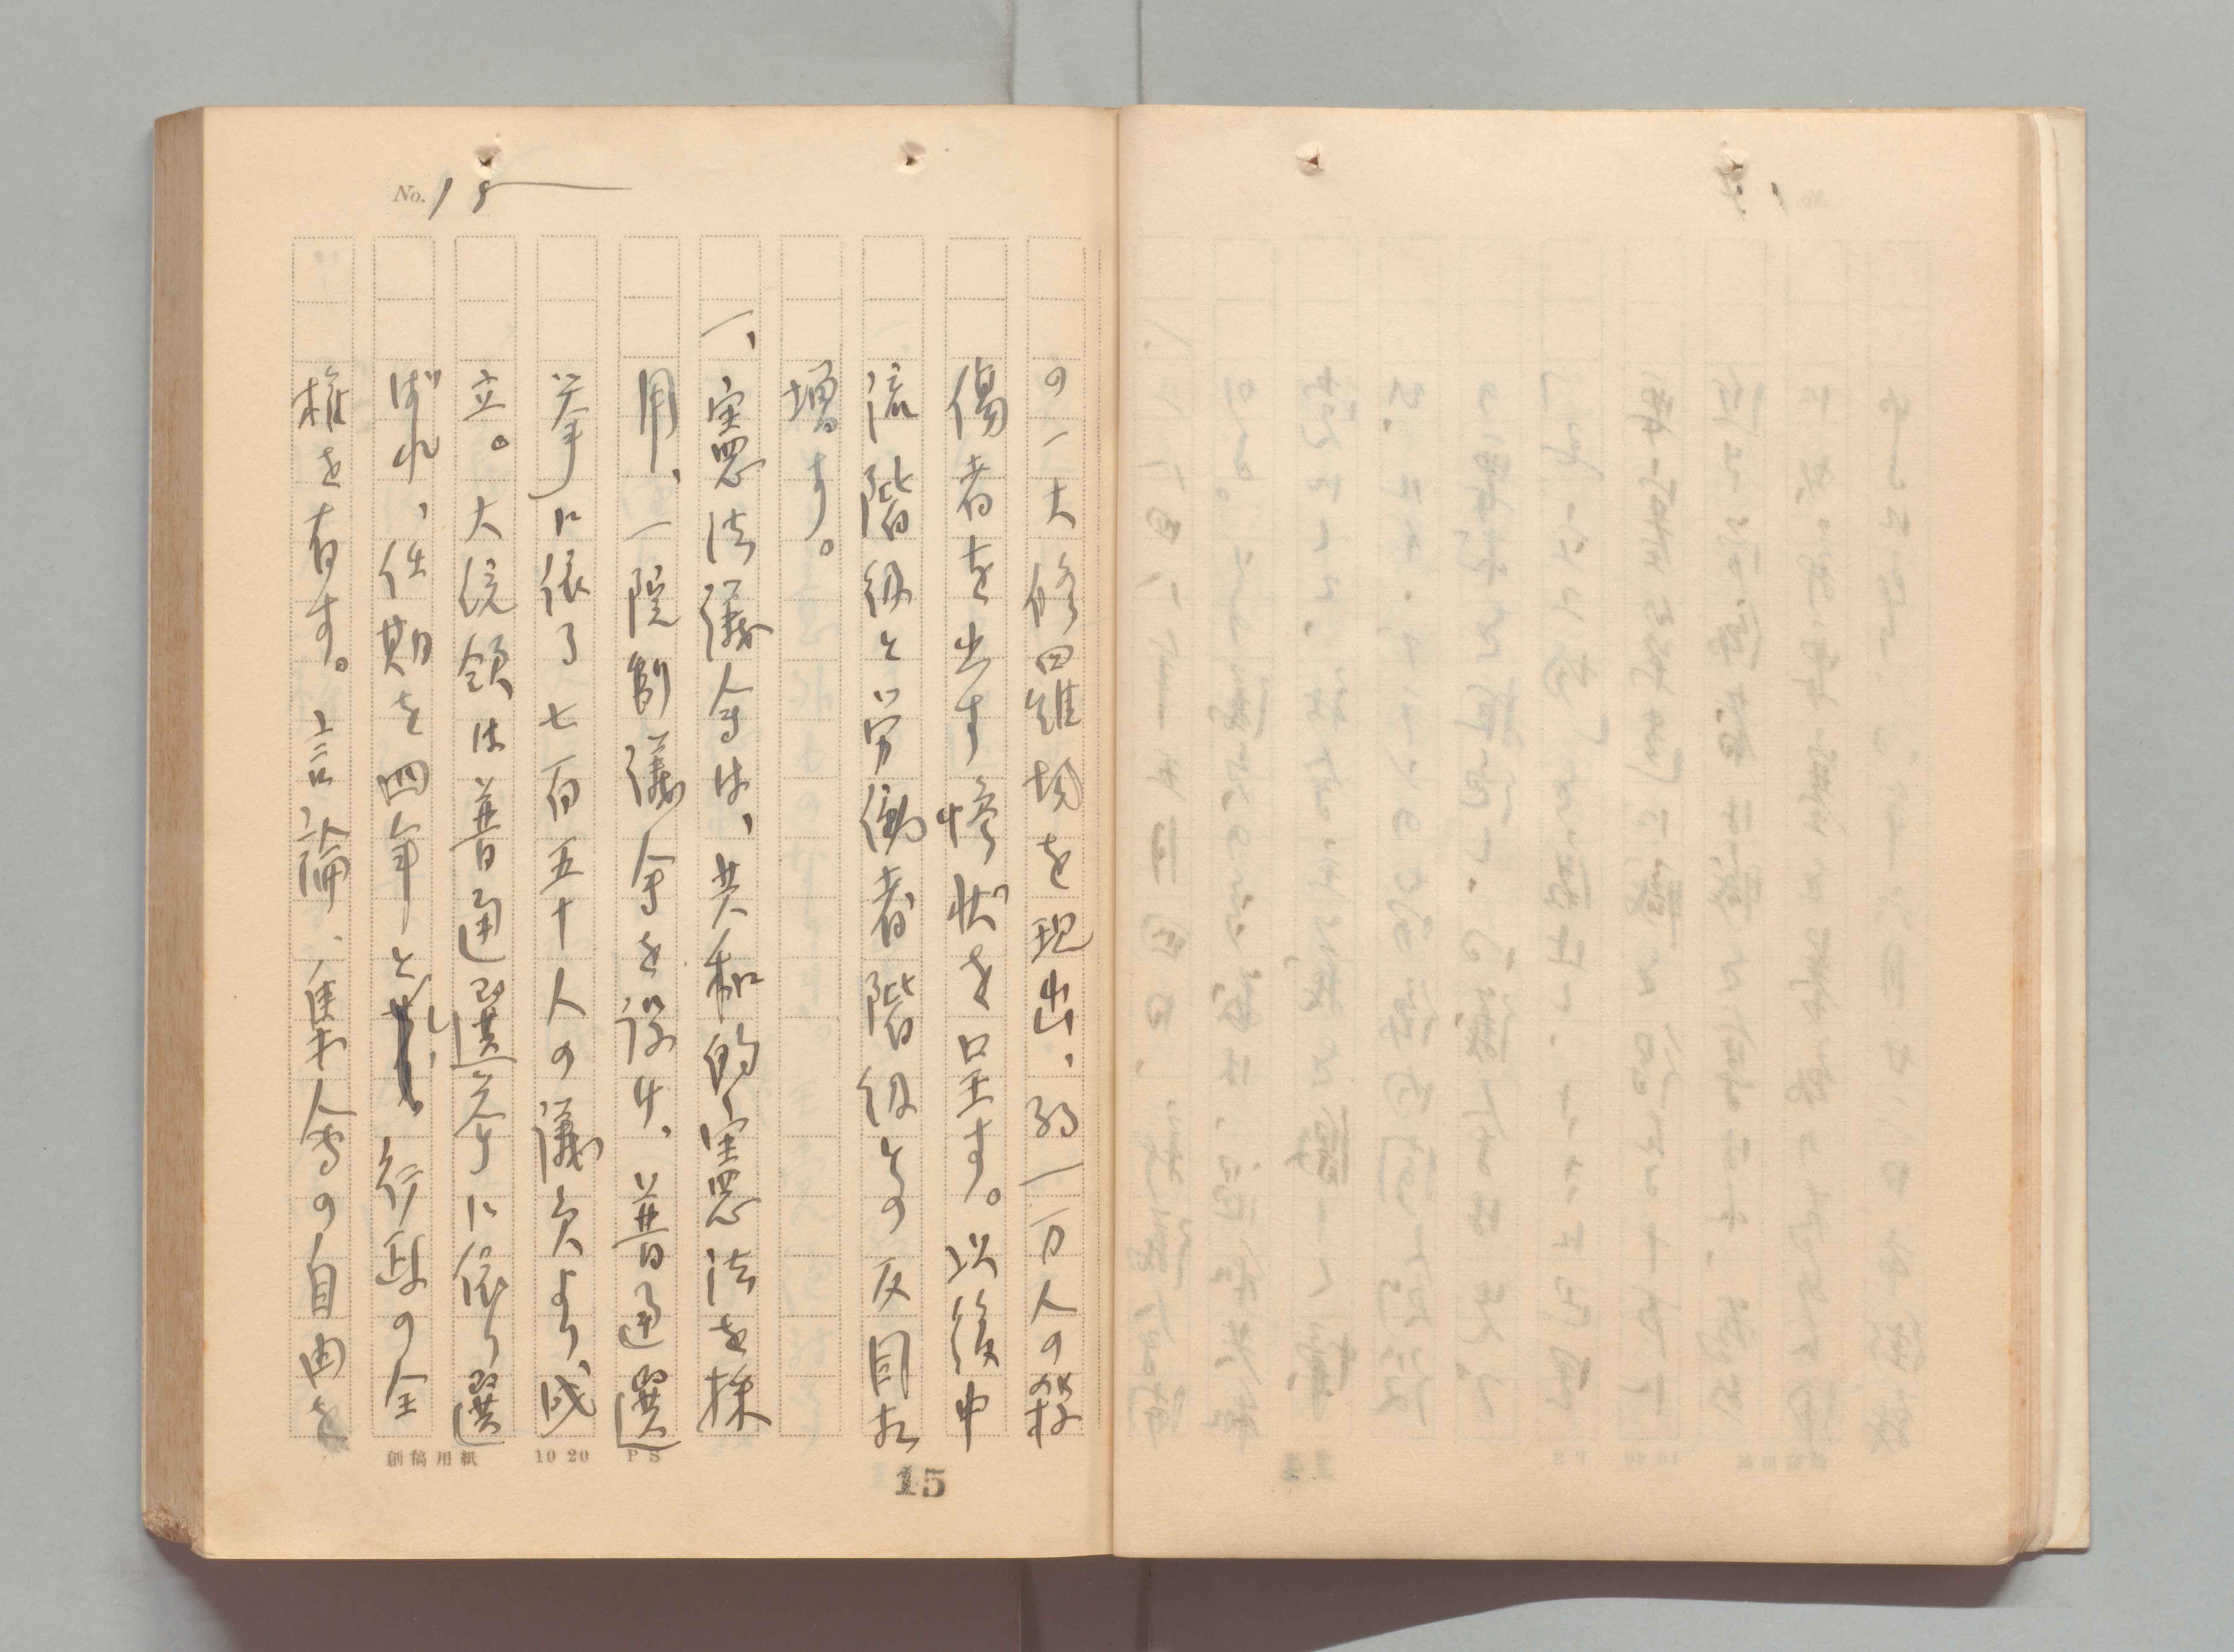 No. 18
の一大修羅場を現出、約一万人の殺
傷者を出す惨状を呈す。以後中
流階級と労働者階級との反目相
増す。
一、憲法議会は、共和的憲法を採
用、一院制議会を設け、普通選
挙に依る七百五十人の議員より成
立。大統領は普通選挙に依り選
ばれ、任期を四年とし、行政の全
権を有す。言論、集会の自由を
創稿用紙 10 20 P S
15